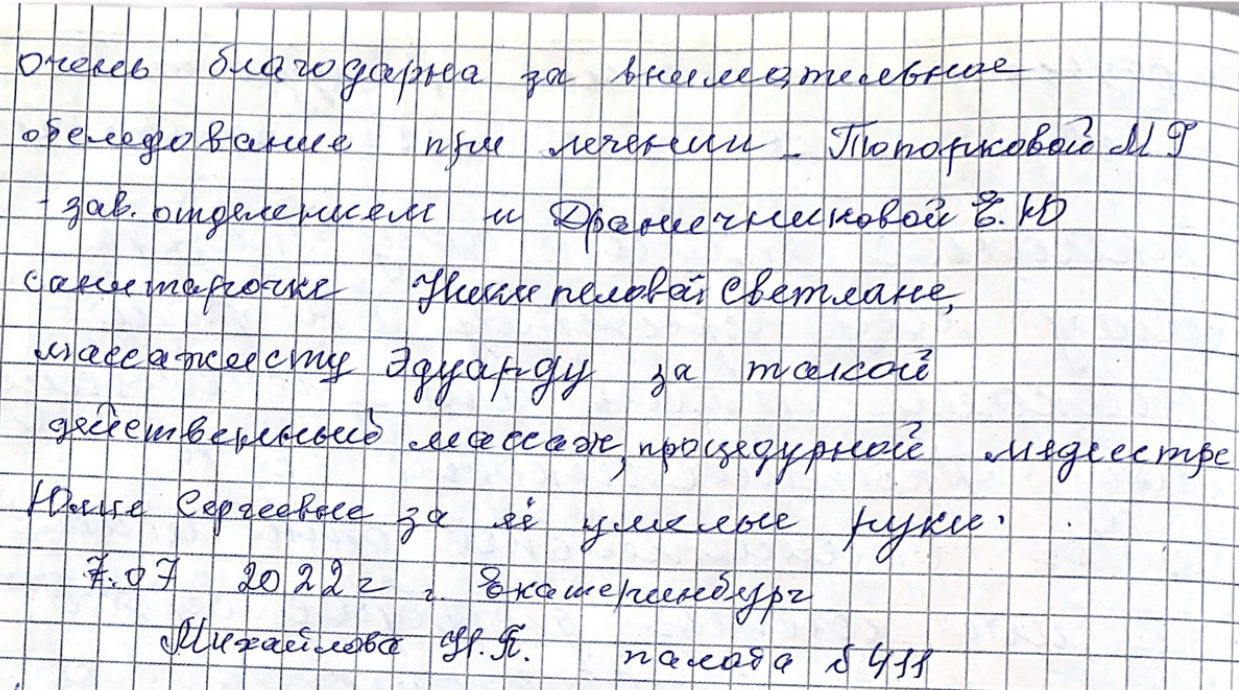 очень благодарна за внимательное
обследование при лечении Топорковой М Г
- зав. отделением и Дранечниковой Е. Ю
санитарочке Светлане,
массажисту Эдуарду за такой
действенный массаж, процедурной медсестре
Юлие Сергеевне за её умелые руки.
7.07 2022 г г. Екатеринбург
Михайлова Н.П. палата 411